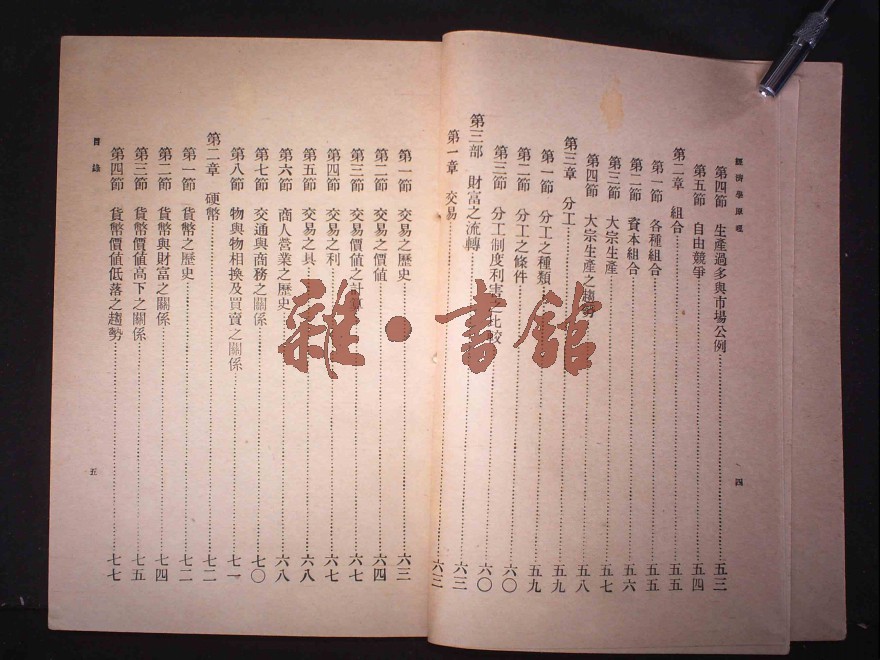 經濟學原理
第四節　生產過多與市場公例……五三
第五節　自由競爭……五四
第二章　組合……五五
第一節　各種組合……五五
第二節　資本組合……五六
第三節　大宗生產……五七
第四節　大宗生產之趨勢……五八
第三章　分工……五九
第一節　分工之種類……五九
第二節　分工之條件……六〇
第三節　分工制度利害之比較……六〇
第三部　財富之流轉……六三
第一章　交易……六三
四
第一節　交易之歷史……六三
第二節　交易之價値……六四
第三節　交易價値之計算……六七
第四節　交易之利……六七
第五節　交易之具……六八
第六節　商人營業之歷史……六八
第七節　交通與商務之關係……七〇
第八節　物與物相換及買賣之關係……七一
第二章　硬幣……七二
第一節　貨幣之歷史……七二
第二節　貨幣與財富之關係……七四
第三節　貨幣價値高下之關係……七五
第四節　貨幣價値低落之趨勢……七七
目錄
五
雜·書館